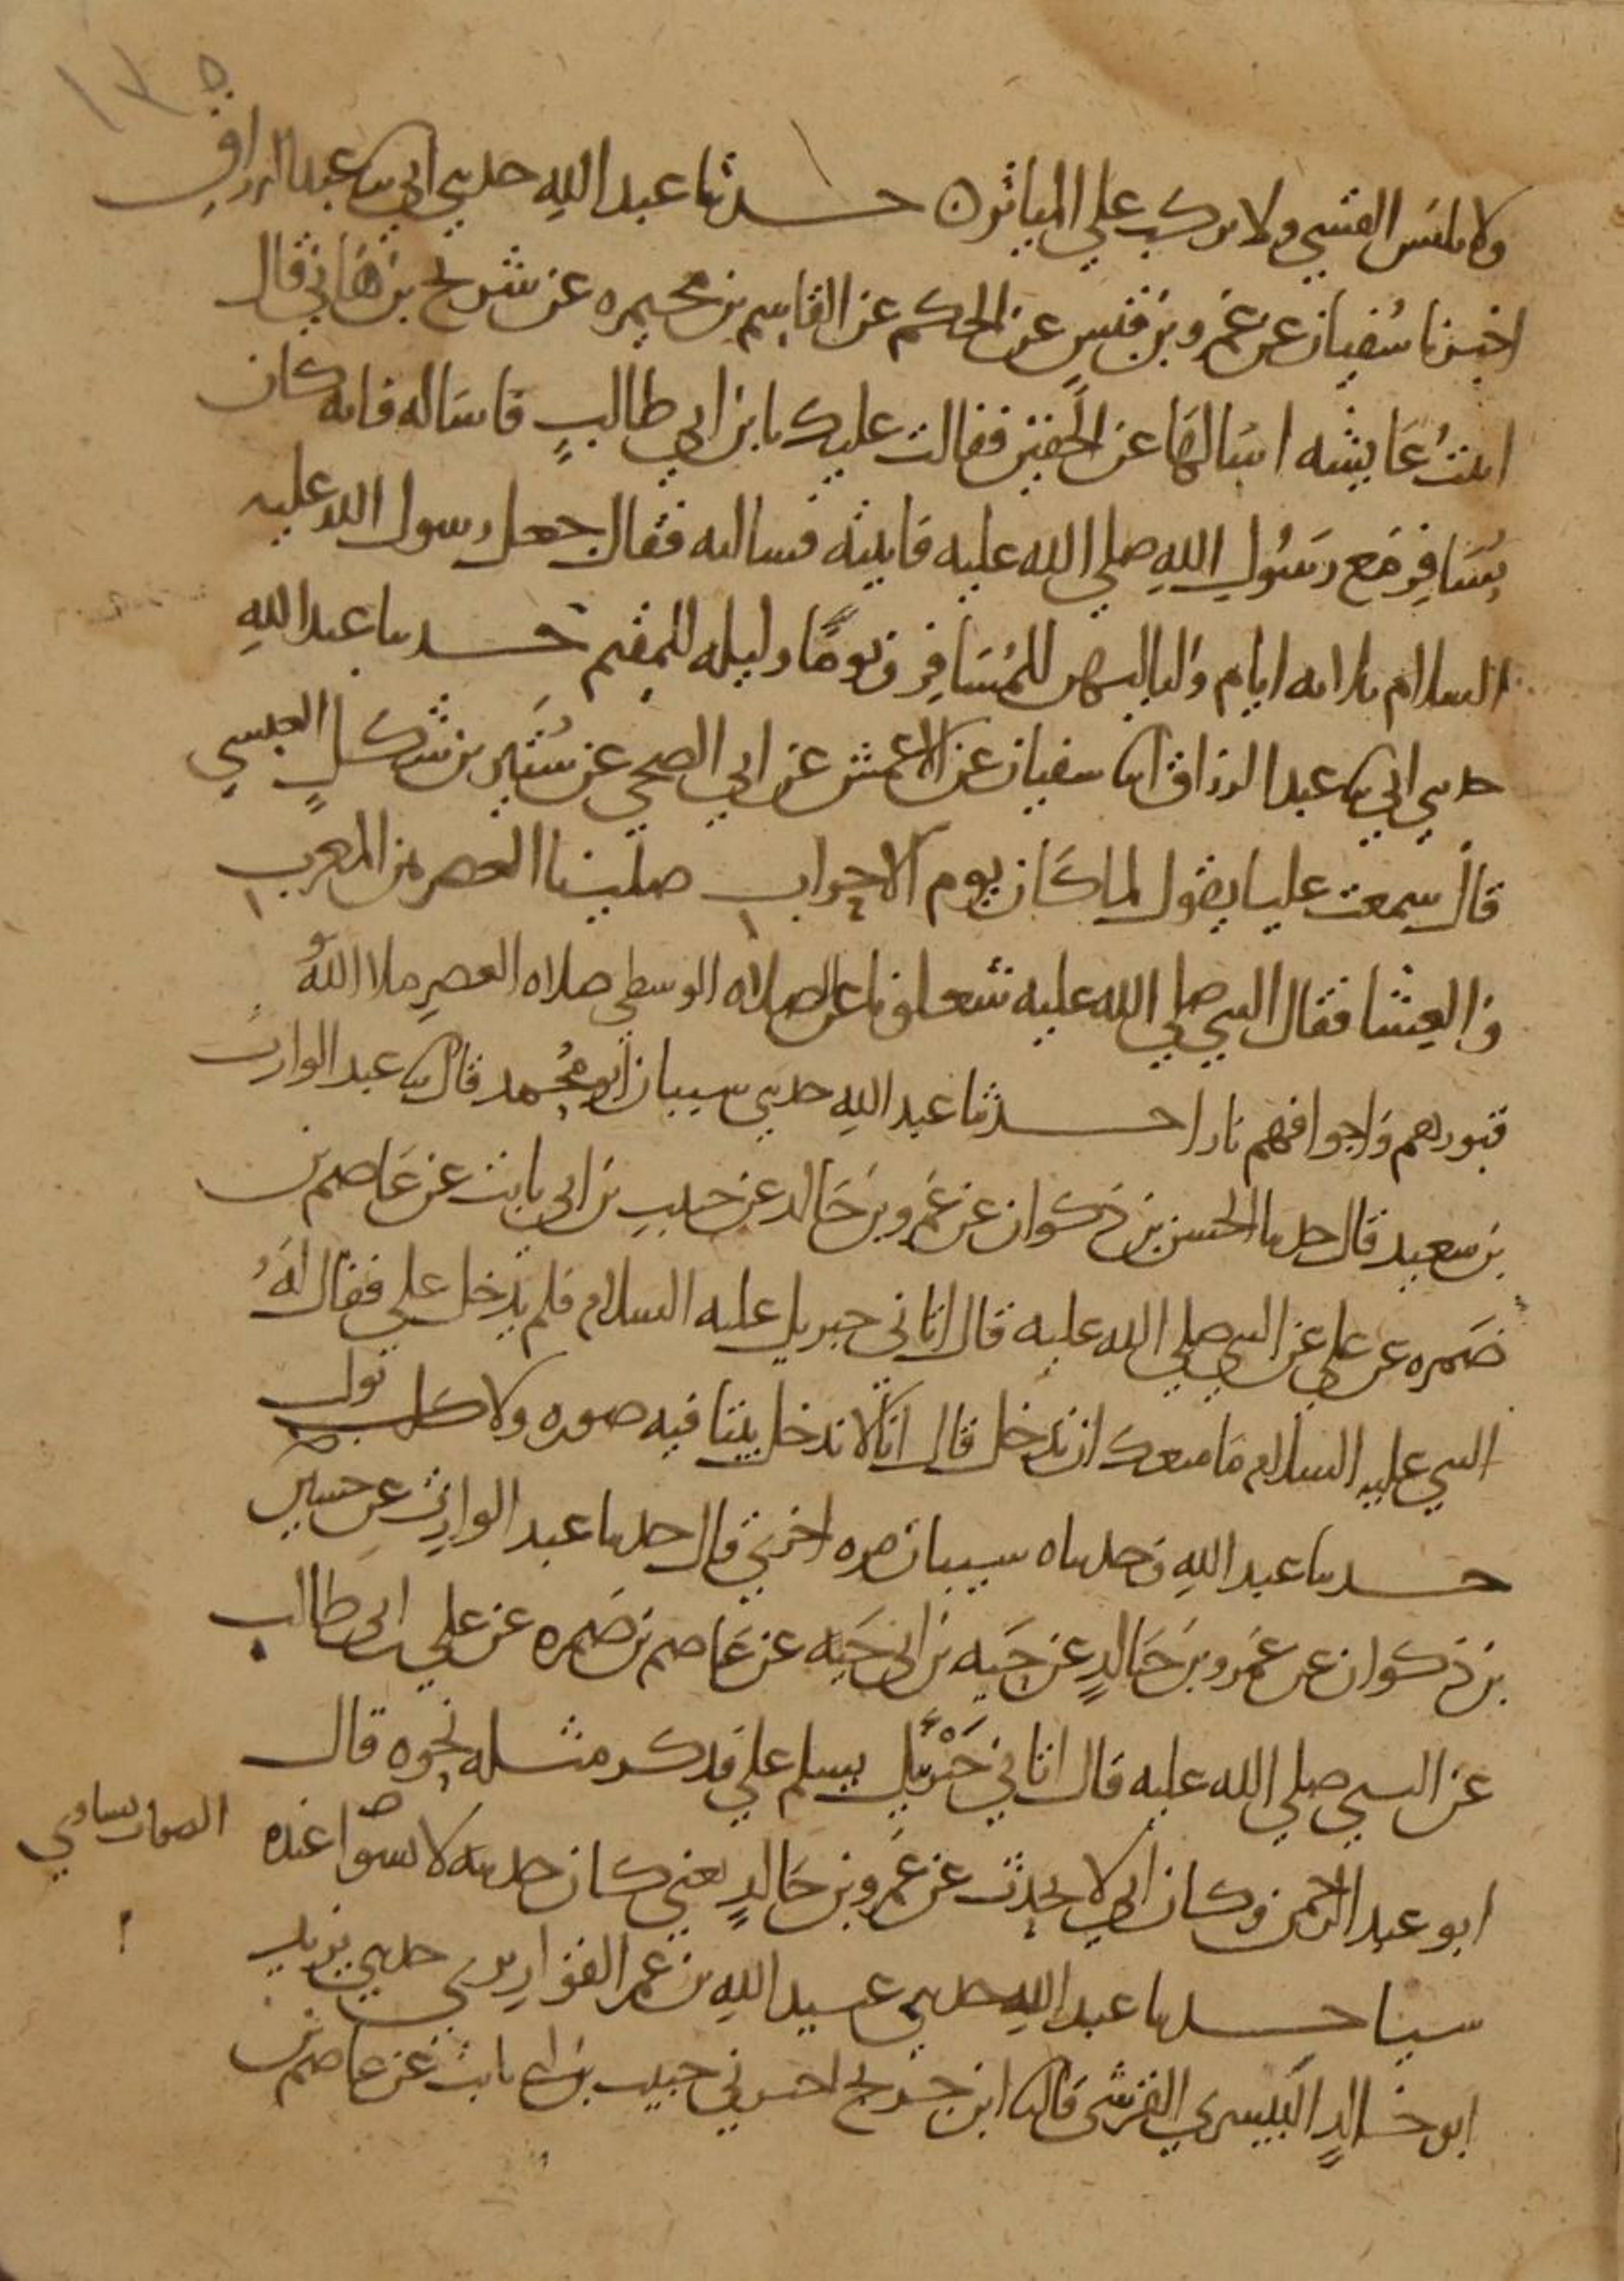 ١٣٥
ولا تلبس القسي ولا تركب على المياثر ٥ حدثنا عبد الله حدثني ابي ثنا عبد الرزاق
اخبرنا سُفيان عن عَمرو بن قيس عن الحكم عن القاسم بن مخيمره عن شريح بن هَاني قال
اتيتُ عَايشه اسَالهَا عن الخفين فقالت عليك بابن ابي طالبٍ فاسَاله فانه كان
يُسَافِر مَع رسَوُل اللهِ صلي الله عليه فاتيته فسالته فقال جعل رسول الله عليه
السلام ثلاثه ايام ولياليهن للمُسَافِر ويومًا وليله للمقيم حدثنا عبد اللهِ
حدثني ابي ثنا عبد الرزاق انا سفيان عن الاعمش عن ابي الضحي عن شُتَير بن شكلٍ العبسي
قال سمعت عليا يقول لما كَان يوم الاحزاب صلينا العصر بين المغرب
والعِشا فقال النبي صلي الله عليه شغلونا عن الصلاه الوسطي صلاه العصرِ ملا اللهُ
قبورهم وَاجوافهم نارا حدثنا عبد اللهِ حدثني سيبان ابو مُحمد قال ثنا عبد الوارث
بن سعيد قال حدثنا الحسن بن ذكوان عن عَمرو بن خَالد عن حبيب بن ابي ثابت عن عَاصم بن
ضَمره عن علي عن النبي صلي الله عليه قال اتاني جبريل عليه السلام فلم يَدخل علي فقال لهَُ
النبي عليه السلام مَا منعك ان تدخل قال انا لا ندخل بيتا فيه صوره ولا كلب بول
حدثنا عبد اللهِ وحدثناه سيبان مره اخري قال حدثنا عبد الوارث عن حسين
بن ذكوان عن عَمرو بن خَالدٍ عن حَبه بن ابي حَبه عن عَاصم بن ضَمره عن علي بن ابي طالب
عن النبي صلي الله عليه قال اتاني جَبْرَئيل يسلم علي فذكر مثله نحوه قال
ابو عبد الرحمن وكان ابي لا يحدث عن عَمرو بن خَالدٍ يعني كان حديثه لا يسوا عنده
الصواب يساوي
شيئا حدثنا عبد اللهِ حدثني عبيد اللهِ بن عمر القواريري حدثني يزيد
ابو خالدٍ البَيسري القرشي قال ثنا ابن جريج اخبرني حبيب بن ابي ثابت عن عاصم بن